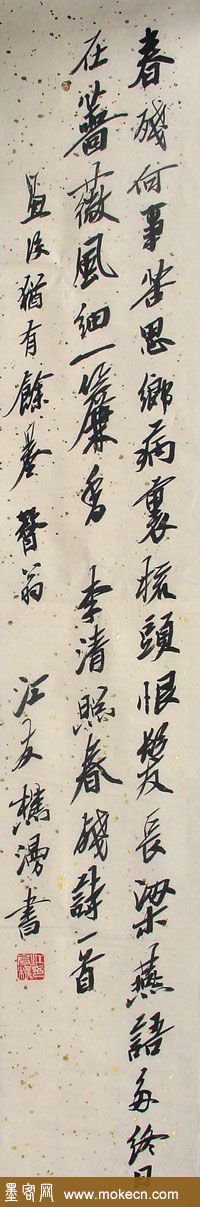 春殘何事苦思鄉病裏梳頭恨髮長梁燕語多終日
在薔薇風細一簾香 李清照春殘詩一首
猶有餘 翁 江友樵 書
墨客网 www.mokecn.com